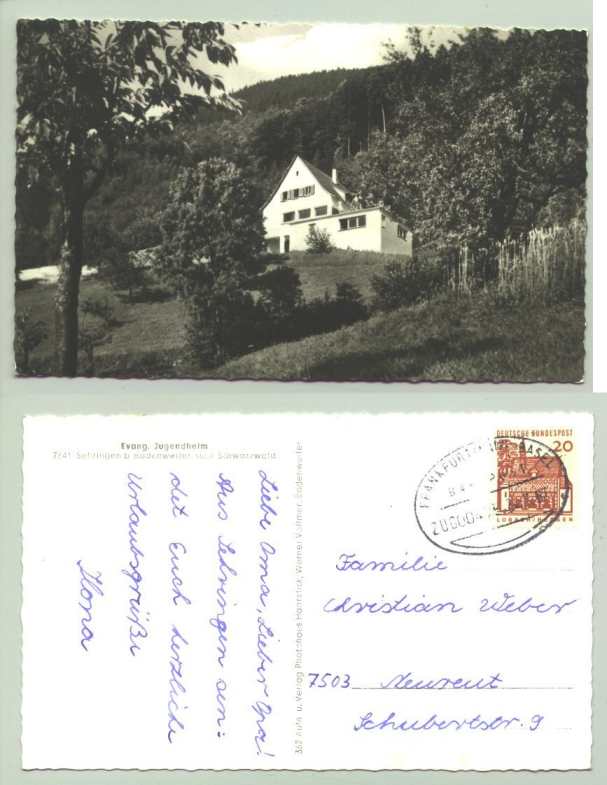 Evang. Jugendheim
7841 Sehringen b. Badenweiler südl. Schwarzwald
Liebe Oma, Lieber Opa!
Aus Sehringen sen-
det Euch herzliche
Urlaubsgrüße
Ilona
Aufn. u. Verlag Photohaus Haarstick, Werner Vollmer, Badenweiler
DEUTSCHE BUNDESPOST
20
LORSCH/HESSEN
FRANKFURT
BASEL
BAHNPOST
Familie
Christian Weber
7503 Neureut
Schubertstr. 9